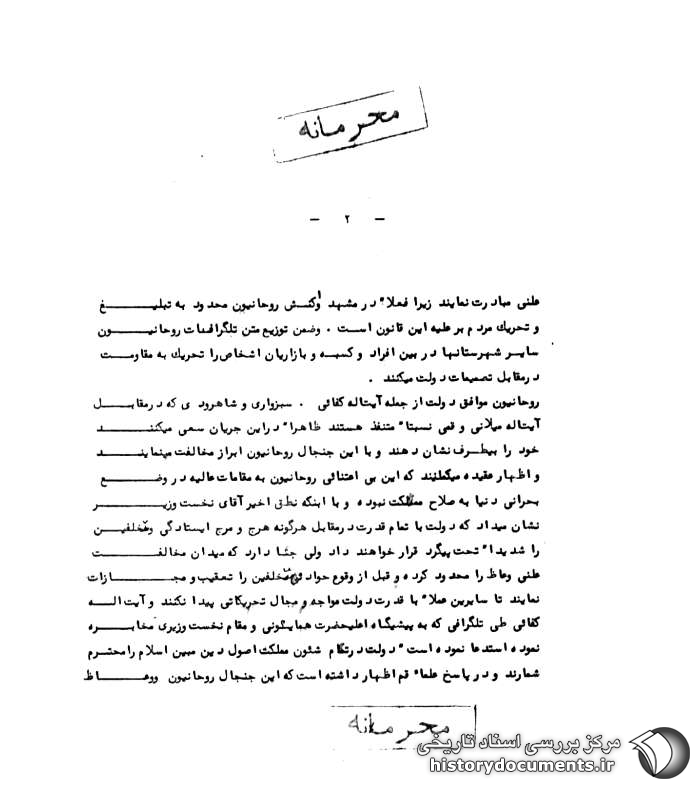 محرمانه
- ۲ -
علنی مبادرت نمایند زیرا فعلاً در مشهد واکنش روحانیون محدود به تبلیغ
و تحریك مردم بر علیه این قانون است . وضمن توزیع متن تلگرافات روحانیون
سایر شهرستانها در بین افراد و کسبه و بازاریان اشخاص را تحریك به مقاومت
در مقابل تصمیمات دولت میکنند .
روحانیون موافق دولت از جمله آیت‌اله کفائی . سبزواری و شاهرودی که در مقابل
آیت‌اله میلانی و قمی نسبتاً متنفذ هستند ظاهراً در این جریان سعی میکنند
خود را بیطرف نشان دهند و با این جنجال روحانیون ابراز مخالفت مینمایند
و اظهار عقیده میکنند که این بی اعتنائی روحانیون به مقامات عالیه در وضع
بحرانی دنیا به صلاح مملکت نبوده و با اینکه نطق اخیر آقای نخست وزیر
نشان میداد که دولت با تمام قدرت در مقابل هرگونه هرج و مرج ایستادگی ومخالفین
را شدیداً تحت پیگرد قرار خواهند داد ولی جا دارد که میدان مخالفت
علنی وعاظ را محدود کرده و قبل از وقوع حوادثی مخالفین را تعقیب و مجازات
نمایند تا سایرین عملاً با قدرت دولت مواجه و مجال تحریکاتی پیدا نکنند و آیت اله
کفائی طی تلگرافی که به پیشگاه اعلیحضرت همایونی و مقام نخست وزیری مخابره
نموده استدعا نموده است " دولت در تمام شئون مملکت اصول دین مبین اسلام را محترم
شمارند و در پاسخ علماء قم اظهار داشته است که این جنجال روحانیون ووعاظ
محرمانه
مرکز بررسی اسناد تاریخی
historydocuments.ir